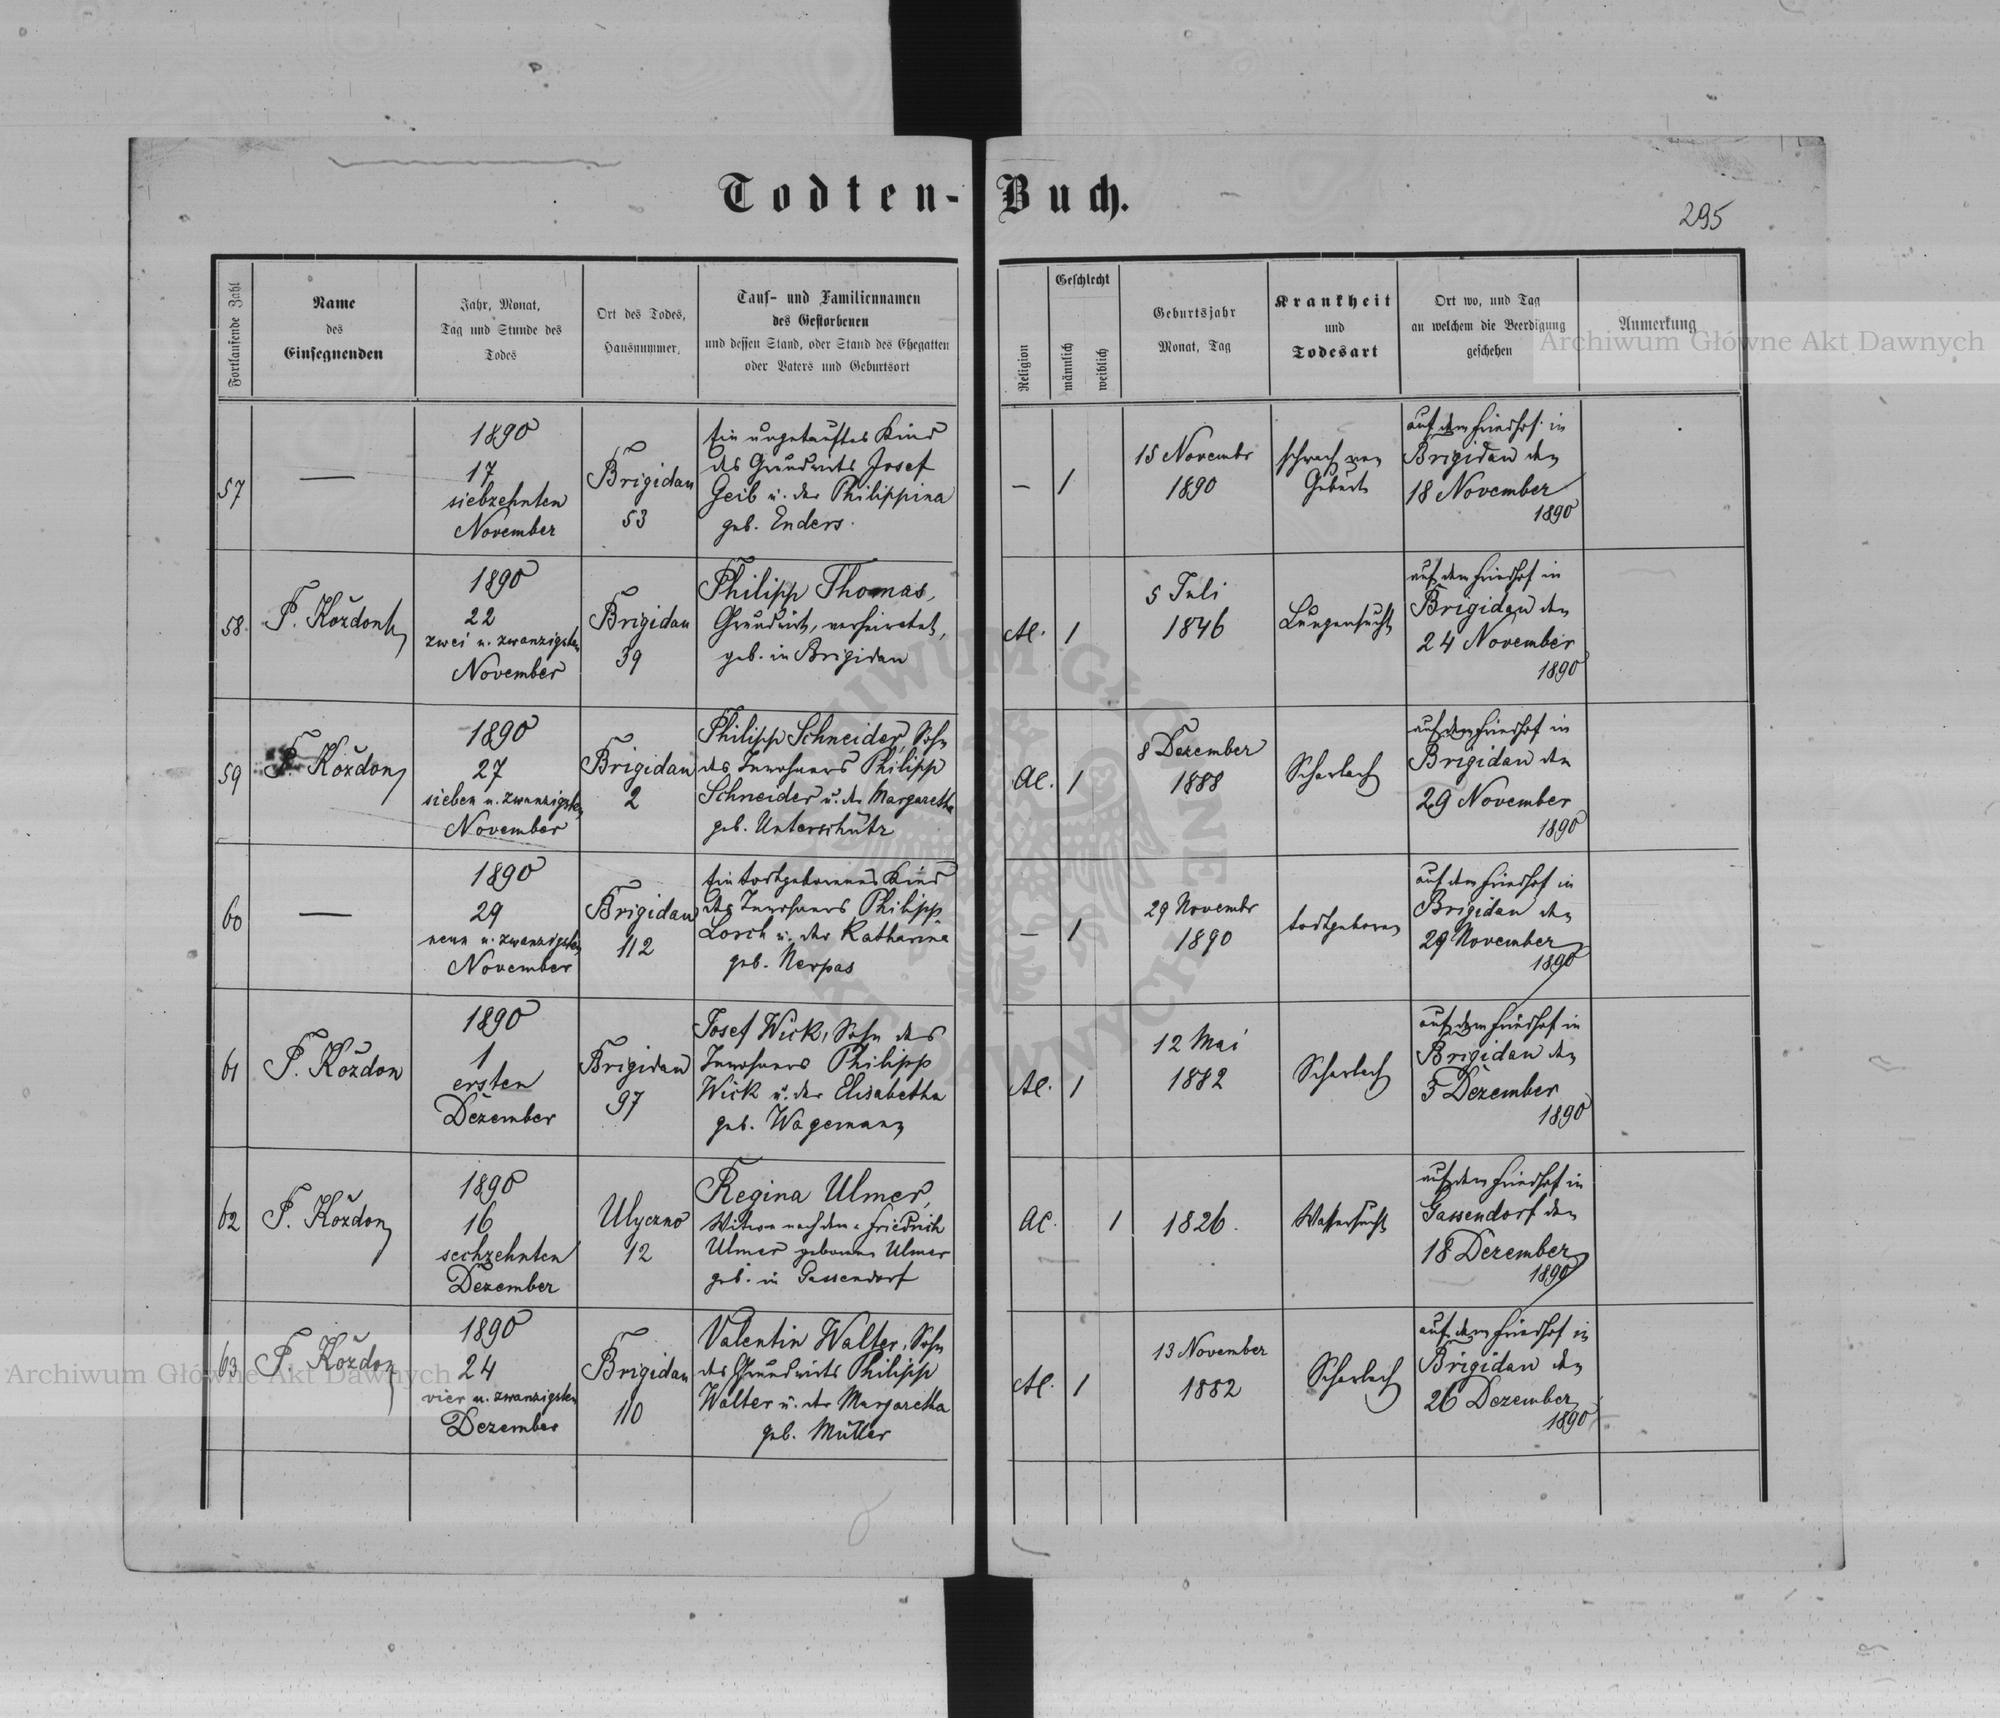 Todten-Buch.
295
Fortlaufende Zahl
Name
des
Einsegnenden
Jahr, Monat,
Tag und Stunde des
Todes
Ort des Todes,
Hausnummer.
Tauf- und Familiennamen
des Gestorbenen
und dessen Stand, oder Stand des Ehegatten
oder Vaters und Geburtsort
Religion
Geschlecht
männlich
weiblich
Geburtsjahr
Monat, Tag
Krankheit
und
Todesart
Ort wo, und Tag
an welchem die Beerdigung
geschehen
Anmerkung
57
—
1890
17
siebzehnten
November
Brigidau
53
Ein ungetauftes Kind
des Grundwirts Josef
Geib u. der Philippina
geb. Enders.
—
1
15 Novembr
1890
schwach von
Geburt
auf dem Friedhof in
Brigidau den
18 November
1890
58.
F. Koždon
1890
22
zwei u. zwanzigsten
November
Brigidau
39
Philipp Thomas,
Grundwirt, verheiratet,
geb. in Brigidau
AC.
1
5 Juli
1846
Lungensucht
auf dem Friedhof in
Brigidau den
24 November
1890
59
F. Koždon
1890
27
sieben u. zwanzigsten
November
Brigidau
2
Philipp Schneider, Sohn
des Inwohners Philipp
Schneider u. der Margaretha
geb. Unterschütz
AC.
1
8 Dezember
1888
Scharlach
auf dem Friedhof in
Brigidau den
29 November
1890
60
—
1890
29
neun u. zwanzigsten
November
Brigidau
112
Ein todtgeborenes Kind
des Inwohners Philipp
Lorch u. der Katharina
geb. Nerpas
—
1
29 Novembr
1890
todtgeboren
auf dem Friedhof in
Brigidau den
29 November
1890
61
F. Koždon
1890
1
ersten
Dezember
Brigidau
97
Josef Wick, Sohn des
Inwohners Philipp
Wick u. der Elisabetha
geb. Wagemann
AC.
1
12 Mai
1882
Scharlach
auf dem Friedhof in
Brigidau den
3 Dezember
1890
62
F. Koždon
1890
16
sechzehnten
Dezember
Ulyczno
12
Regina Ulmer,
Witwe nach dem Friedrich
Ulmer geborene Ulmer
geb. in Gassendorf
AC.
1
1826.
Wassersucht
auf dem Friedhof in
Gassendorf den
18 Dezember
1890
63
F. Koždon
1890
24
vier u. zwanzigsten
Dezember
Brigidau
110
Valentin Walter, Sohn
des Grundwirts Philipp
Walter u. der Margaretha
geb. Müller
AC.
1
13 November
1882
Scharlach
auf dem Friedhof in
Brigidau den
26 Dezember
1890
Archiwum Główne Akt Dawnych
Archiwum Główne Akt Dawnych